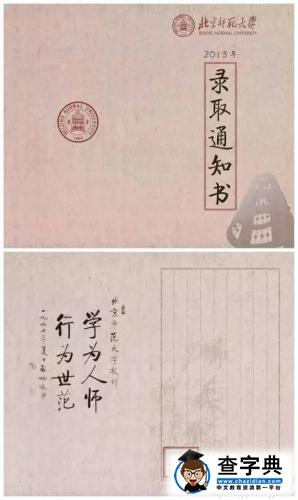 北京师范大学
BEIJING NORMAL UNIVERSITY
2013年
录取通知书
BEIJING NORMAL UNIVERSITY
1902
北京师范大学校训
学为人师
行为世范
一九九七年夏日 启功敬书
查字典
www.chazidian.com
中文教育资源第一平台